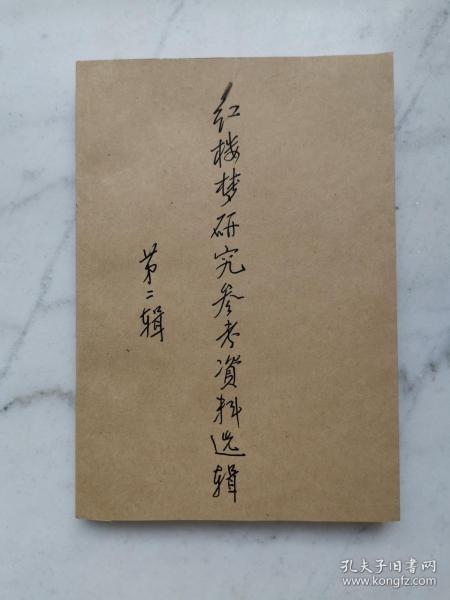 红楼梦研究参考資料选辑
第二辑
孔夫子旧书网
www.kongfz.com